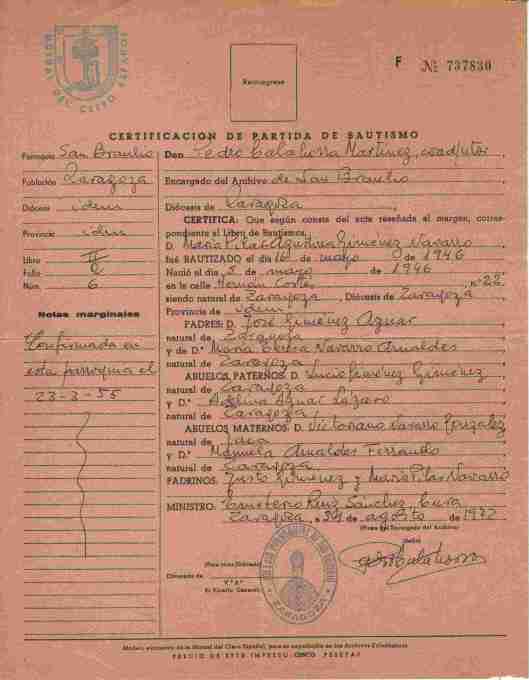 MUTUAL DEL CLERO ESPAÑOL
Reintegrese
F Nº 737830
CERTIFICACION DE PARTIDA DE BAUTISMO
Parroquia San Braulio
Población Zaragoza
Diócesis idem
Provincia idem
Libro II
Folio 2
Núm. 6
Notas marginales
Confirmada en
esta parroquia el
23-3-55
Don Pedro Calahorra Martínez, coadjutor,
Encargado del Archivo de San Braulio
Diócesis de Zaragoza,
CERTIFICA: Que según consta del acta reseñada al margen, corres-
pondiente al Libro de Bautismos,
D. María Pilar Agustina Gimenez Navarro
fué BAUTIZADO el día 16 de mayo de 1946
Nació el día 5 de mayo de 1946
en la calle Hernán Cortés, nº 22
siendo natural de Zaragoza, Diócesis de Zaragoza
Provincia de idem
PADRES: D. José Giménez Aznar
natural de Zaragoza
y de D.ª María Navarro Arnaldes
natural de Zaragoza
ABUELOS PATERNOS: D. Lucio Gimenez Gimenez
natural de Zaragoza
y D.ª Adelina Aznar Lázaro
natural de Zaragoza
ABUELOS MATERNOS: D. Victoriano Navarro González
natural de Jaca
y D.ª Manuela Arnaldes Ferrando
natural de Zaragoza
PADRINOS: Justo Gimenez y María Pilar Navarro
MINISTRO: Ruiz Sánchez, Cura
Zaragoza, a de agosto de 1972
(Firma del Encargado del Archivo)
(Sello)
(Para otras Diócesis)
Obispado de
V.º B.º
El Vicario General,
ZARAGOZA
Modelo exclusivo de la Mutual del Clero Español, para su expedición en los Archivos Eclesiásticos
PRECIO DE ESTE IMPRESO: CINCO PESETAS